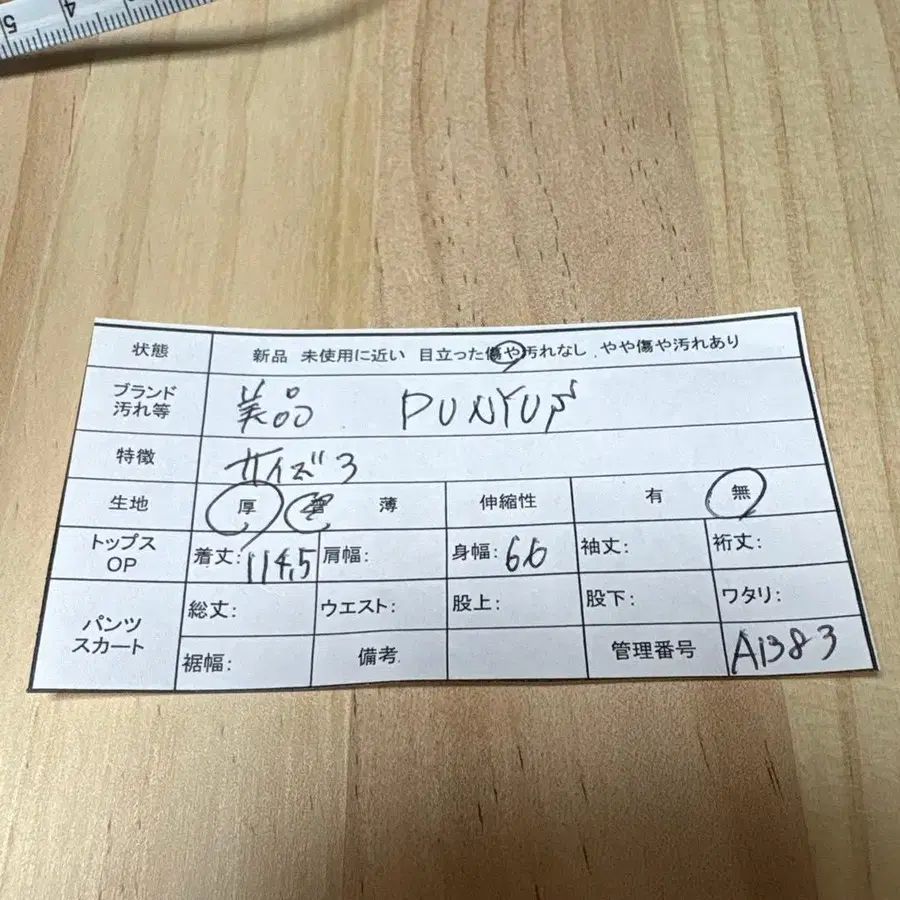 5 4
状態 新品 未使用に近い 目立った傷や汚れなし やや傷や汚れあり
ブランド 汚れ等 美品 PUNYUS
特徴 サイズ3
生地 厚 薄 伸縮性 有 無
トップス OP 着丈: 114.5 肩幅: 身幅: 66 袖丈: 裄丈:
パンツ スカート 総丈: ウエスト: 股上: 股下: ワタリ:
裾幅: 備考 管理番号 A1383